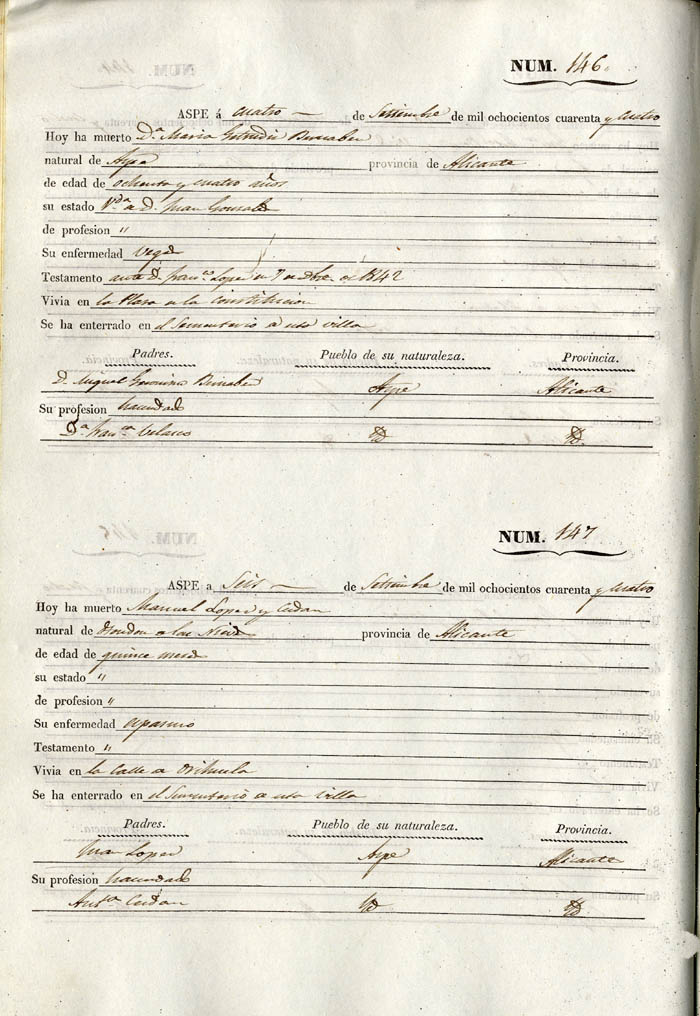 NUM. 146.
ASPE á cuatro de Setiembre de mil ochocientos cuarenta y cuatro
Hoy ha muerto D.ª Maria Getrudis Bernabeu
natural de Aspe provincia de Alicante
de edad de ochenta y cuatro años
su estado V.da de D. Juan Gonzalez
de profesion "
Su enfermedad vegez
Testamento ante D. Fran.co Lopez en 9 de 1842
Vivia en la Plaza de la Constitucion
Se ha enterrado en el Sementerio de esta villa
Padres. Pueblo de su naturaleza. Provincia.
D. Miguel Geronimo Bernabeu Aspe Alicante
Su profesion hacendado
D.ª Fran.ca Velasco Yd Yd.
NUM. 147
ASPE a Seis de Setiembre de mil ochocientos cuarenta y cuatro
Hoy ha muerto Manuel Lopez y Cerdan
natural de Hondon de las Nieves provincia de Alicante
de edad de quince meses
su estado "
de profesion "
Su enfermedad
Testamento "
Vivia en la Calle de Orihuela
Se ha enterrado en el Sementerio de esta villa
Padres. Pueblo de su naturaleza. Provincia.
Lopez Aspe Alicante
Su profesion hacendado
Ant.ª Cerdan Yd Yd